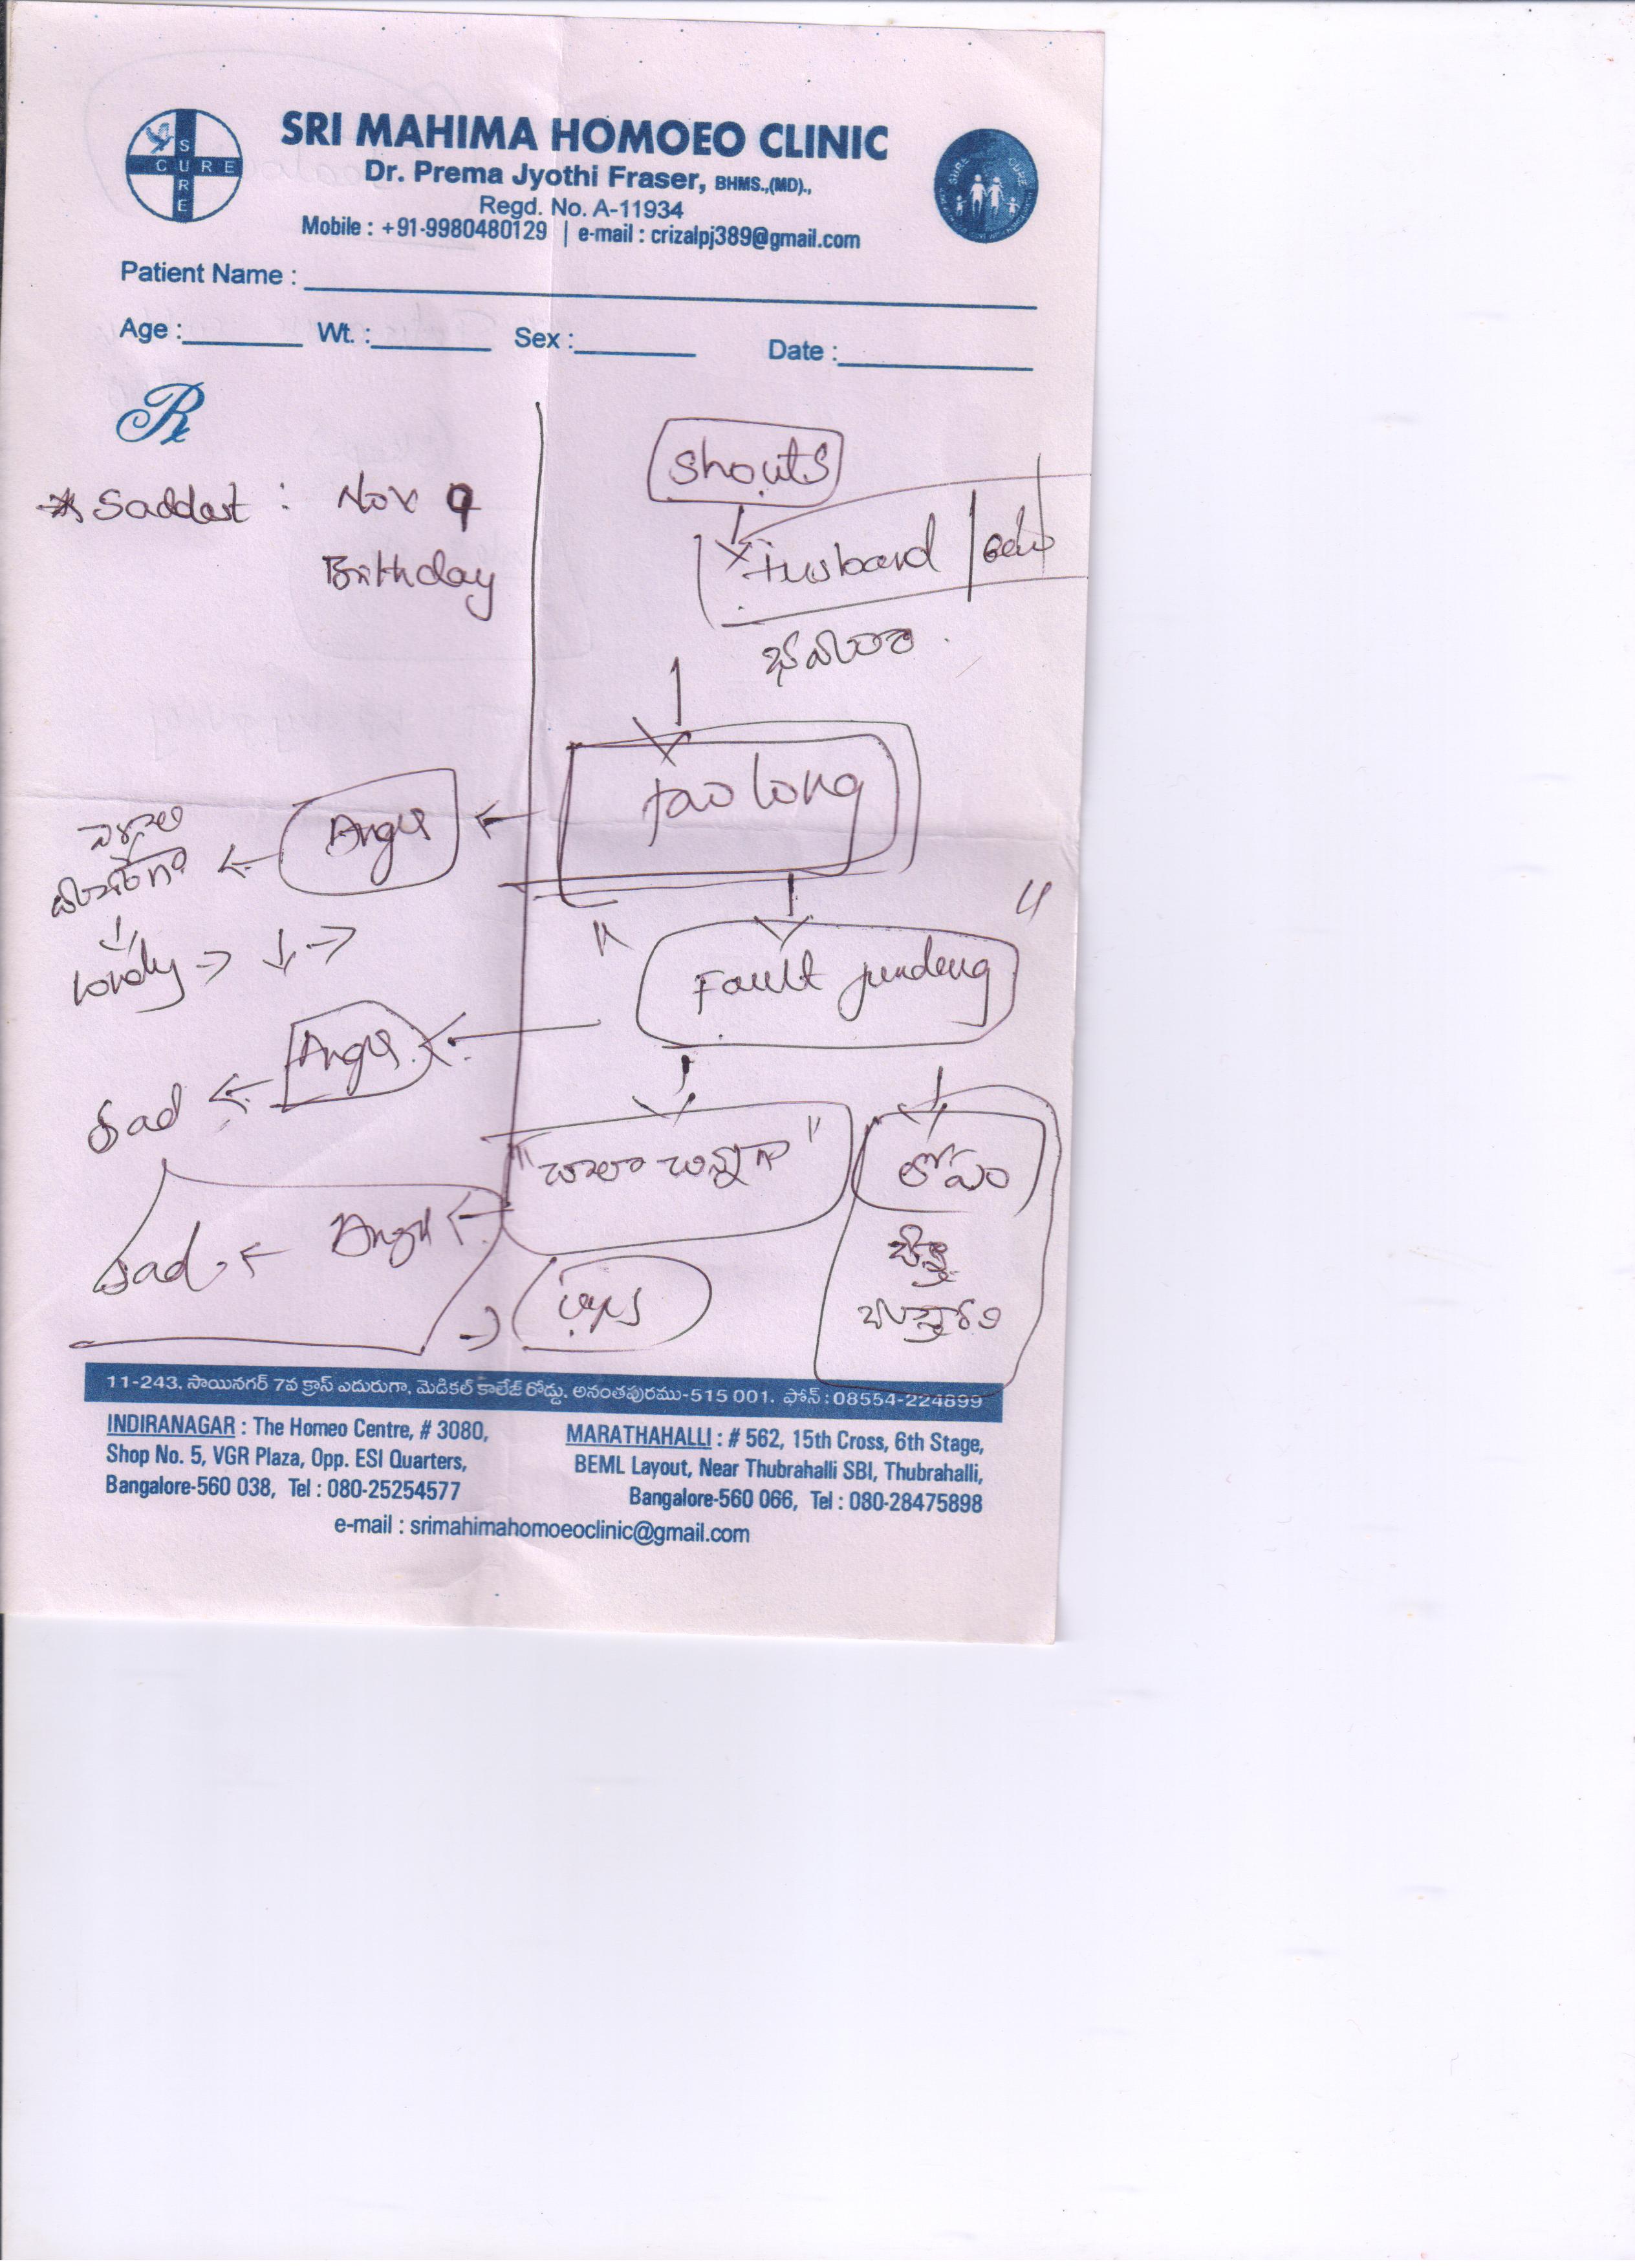 SURE
CURE
SRI MAHIMA HOMOEO CLINIC
Dr. Prema Jyothi Fraser, BHMS.,(MD).,
Regd. No. A-11934
Mobile : +91-9980480129 | e-mail : crizalpj389@gmail.com
Patient Name :
Age : Wt. : Sex : Date :
Rx
Saddest : Nov 9
Birthday
Shouts
Husband
too long
Anger
lonely
Fault finding
Anger
Sad
"చాలా చిన్నగా"
లోపం
Anger
Sad
11-243, సాయినగర్ 7వ క్రాస్ ఎదురుగా, మెడికల్ కాలేజ్ రోడ్డు, అనంతపురము-515 001. ఫోన్ : 08554-224899
INDIRANAGAR : The Homeo Centre, # 3080,
Shop No. 5, VGR Plaza, Opp. ESI Quarters,
Bangalore-560 038, Tel : 080-25254577
MARATHAHALLI : # 562, 15th Cross, 6th Stage,
BEML Layout, Near Thubrahalli SBI, Thubrahalli,
Bangalore-560 066, Tel : 080-28475898
e-mail : srimahimahomoeoclinic@gmail.com